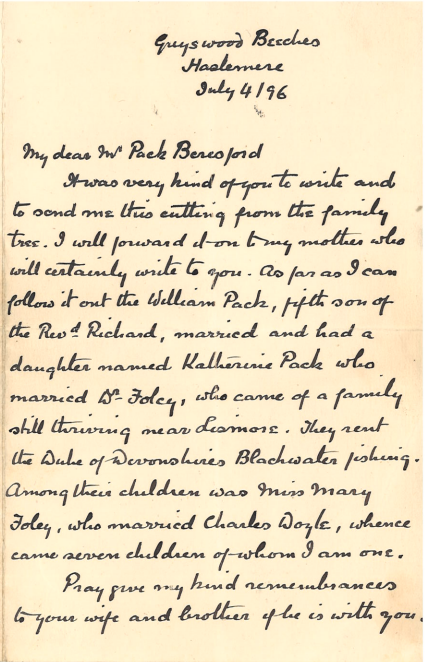 Greyswood Beeches
Haslemere
July 4/96
My dear Mr Pack Beresford
It was very kind of you to write and
to send me this cutting from the family
tree. I will forward it on to my mother who
will certainly write to you. As far as I can
follow it out the William Pack, fifth son of
the Revd Richard, married and had a
daughter named Katherine Pack who
married Dr Foley, who came of a family
still thriving near Lismore. They rent
the Duke of Devonshires Blackwater fishing.
Among their children was Miss Mary
Foley, who married Charles Doyle, whence
came seven children of whom I am one.
Pray give my kind remembrances
to your wife and brother if he is with you.